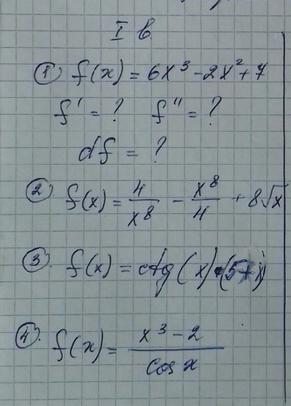 I в.
① f(x) = 6x³ - 2x² + 7
f' = ? f'' = ?
df = ?
② f(x) = 4/x⁸ - x⁸/4 + 8√x
③ f(x) = ctg(x)
④ f(x) = (x³ - 2)/cos x